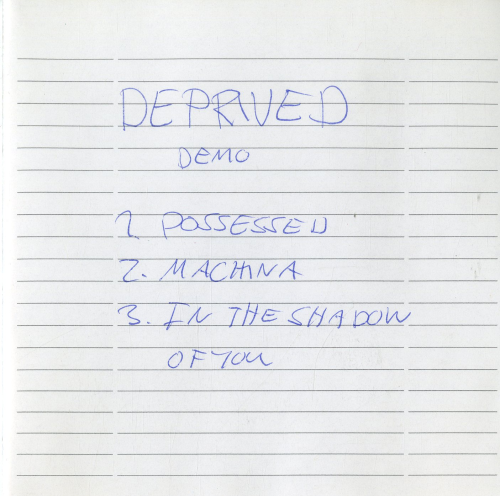 DEPRIVED
DEMO
1. POSSESSED
2. MACHINA
3. IN THE SHADOW
OF YOU